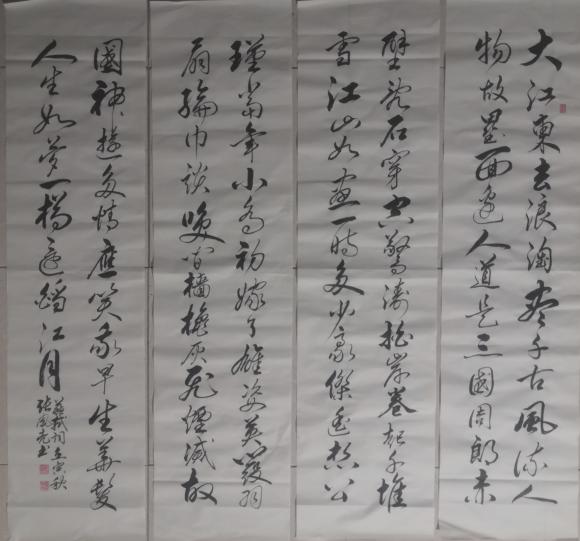 大江東去浪淘盡千古風流人
物故壘西邊人道是三國周郎赤
壁亂石穿空驚濤拍岸卷起千堆
雪江山如畫一時多少豪傑遙想公
瑾當年小喬初嫁了雄姿英發羽
扇綸巾談咲間檣櫓灰飛煙滅故
國神遊多情應笑我早生華髮
人生如夢一樽還酹江月
蘇軾詞壬寅秋
張亮书